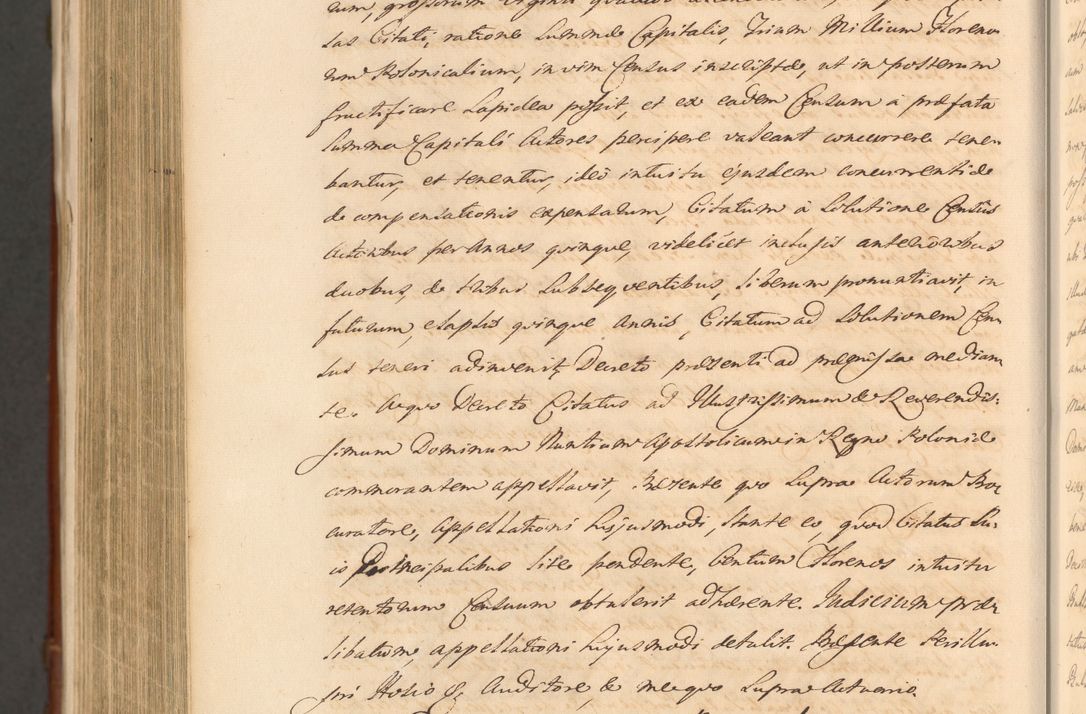 sas Citati, ratione Summæ Capitalis, Trium Millium Floreno
rum Polonicalium, in vim Census inscriptæ, ut in posterum
fructificare Lapidea possit, et ex eadem Censum a præfata
Summa Capitali Actores percipere valeant concurrere tene-
bantur, et tenentur, ideo intuitu ejusdem concurrentiæ
de compensationis expensarum, Citatum a Solutione Census
Actoribus per Annos quinque, videlicet inclusis anterioribus
duobus, & tribus Subsequentibus, liberum pronuntiavit, in
futurum, elapsis quinque Annis, Citatum ad Solutionem Cen-
sus teneri adinvenit, Decreto præsenti ad præmissa median
te. A quo Decreto Citatus ad Illustrissimum & Reverendis-
simum Dominum Nuntium Apostolicum in Regno Poloniæ
commorantem appellavit, Præsente quo Supra Actorum Pro
curatore, Appellationi hujusmodi, stante eo, quod Citatus Su-
is Principalibus lite pendente, Centum Florenos intuitu
retentorum Censuum obtulerit adhærente. Judicium præ
libatum, appellationi hujusmodi detulit. Præsente Perillu-
stri Auditore & meque Supra Actuario.